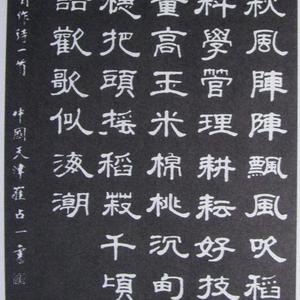 秋風陣陣飄風吹稻
科學管理耕耘好技
量高玉米棉桃沉甸
穗把頭搖稻穀千頃
語歡歌似海潮
自作詩一首 中國天津崔占一書